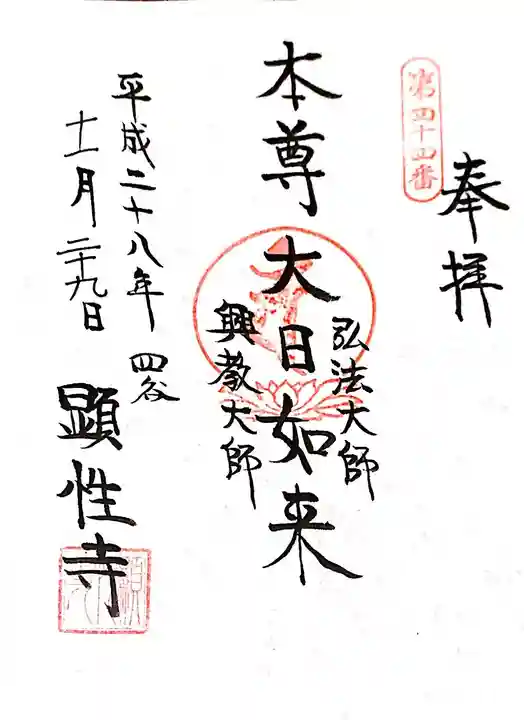 奉拝
第四十四番
弘法大師
本尊 大日如来
興教大師
四谷
平成二十八年
十一月二十九日
顕性寺